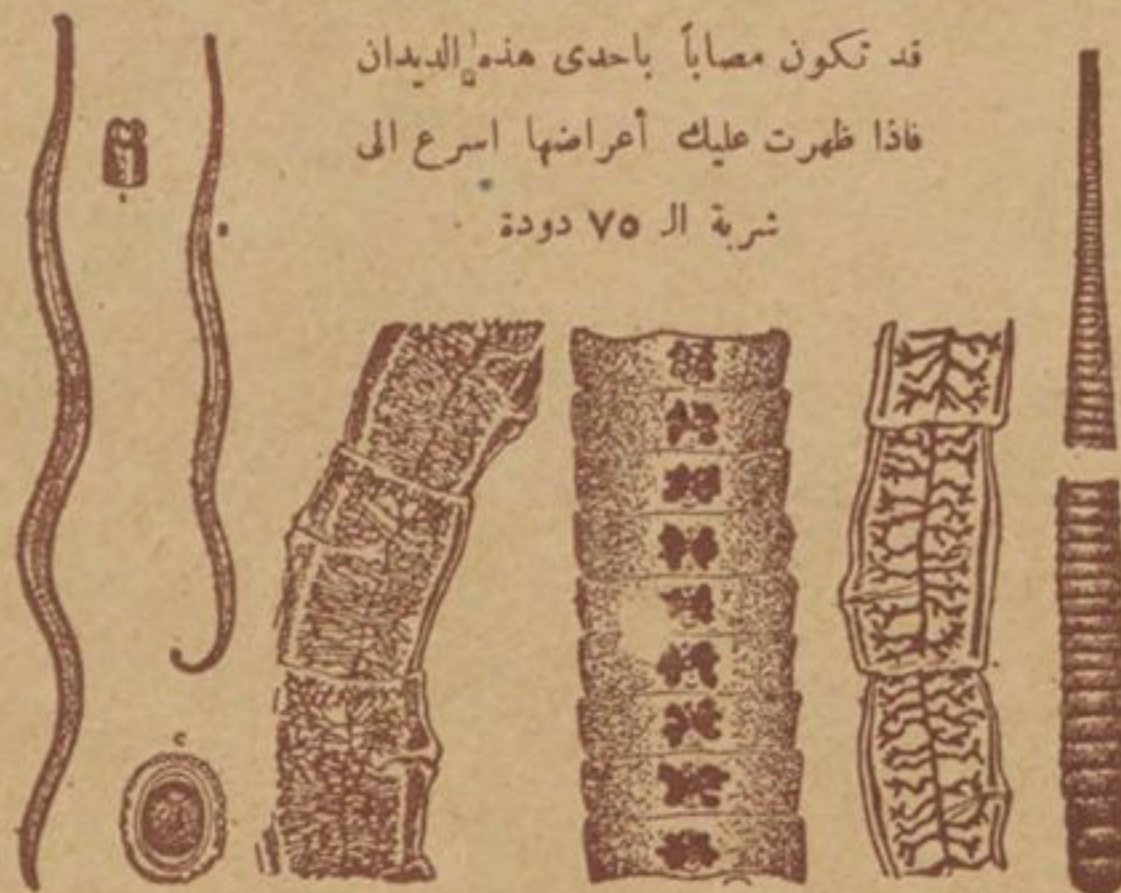 قد تكون مصاباً باحدى هذه الديدان
فاذا ظهرت عليك أعراضها اسرع الى
شربة الـ ٧٥ دودة
c